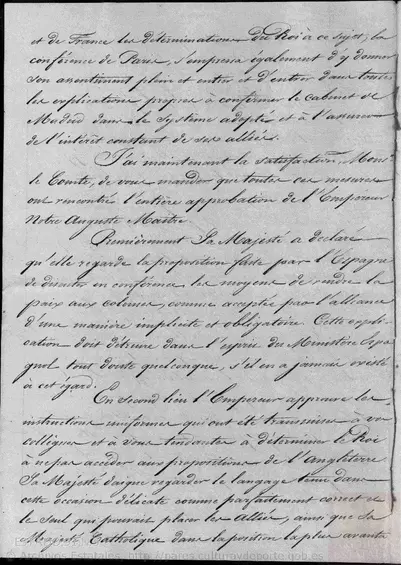 et de France les déterminations du Roi à ce sujet; la
conférence de Paris, s'empressa également d'y donner
son assentiment plein et entier et d'entrer dans toutes
les explications propres à confirmer le cabinet de
Madrid dans le système adopté et à l'assurer
de l'intérêt constant de ses alliés.
J'ai maintenant la satisfaction, Mons.
le Comte, de vous mander que toutes ces mesures
ont rencontré l'entière approbation de l'Empereur
Notre Auguste Maître.
Premièrement Sa Majesté a declaré
qu'elle regarde la proposition faite par l'Espagne
de discuter en conférence les moyens de rendre la
paix aux colonies, comme acceptée par l'alliance
d'une manière implicite et obligatoire. Cette expli-
cation doit détruire dans l'esprit du Ministère Espa-
gnol tout doute quelconque, s'il en a jamais existé
à cet égard.
En second lieu l'Empereur approuve les
instructions uniformes qui ont été transmises à vos
collègues et à vous tendantes à déterminer le Roi
à ne pas accéder aux propositions de l'Angleterre.
Sa Majesté daigne regarder le langage tenu dans
cette occasion délicate comme parfaitement correct et
le seul qui pouvait placer les Alliés, ainsi que Sa
Majesté Catholique dans la position la plus avanta